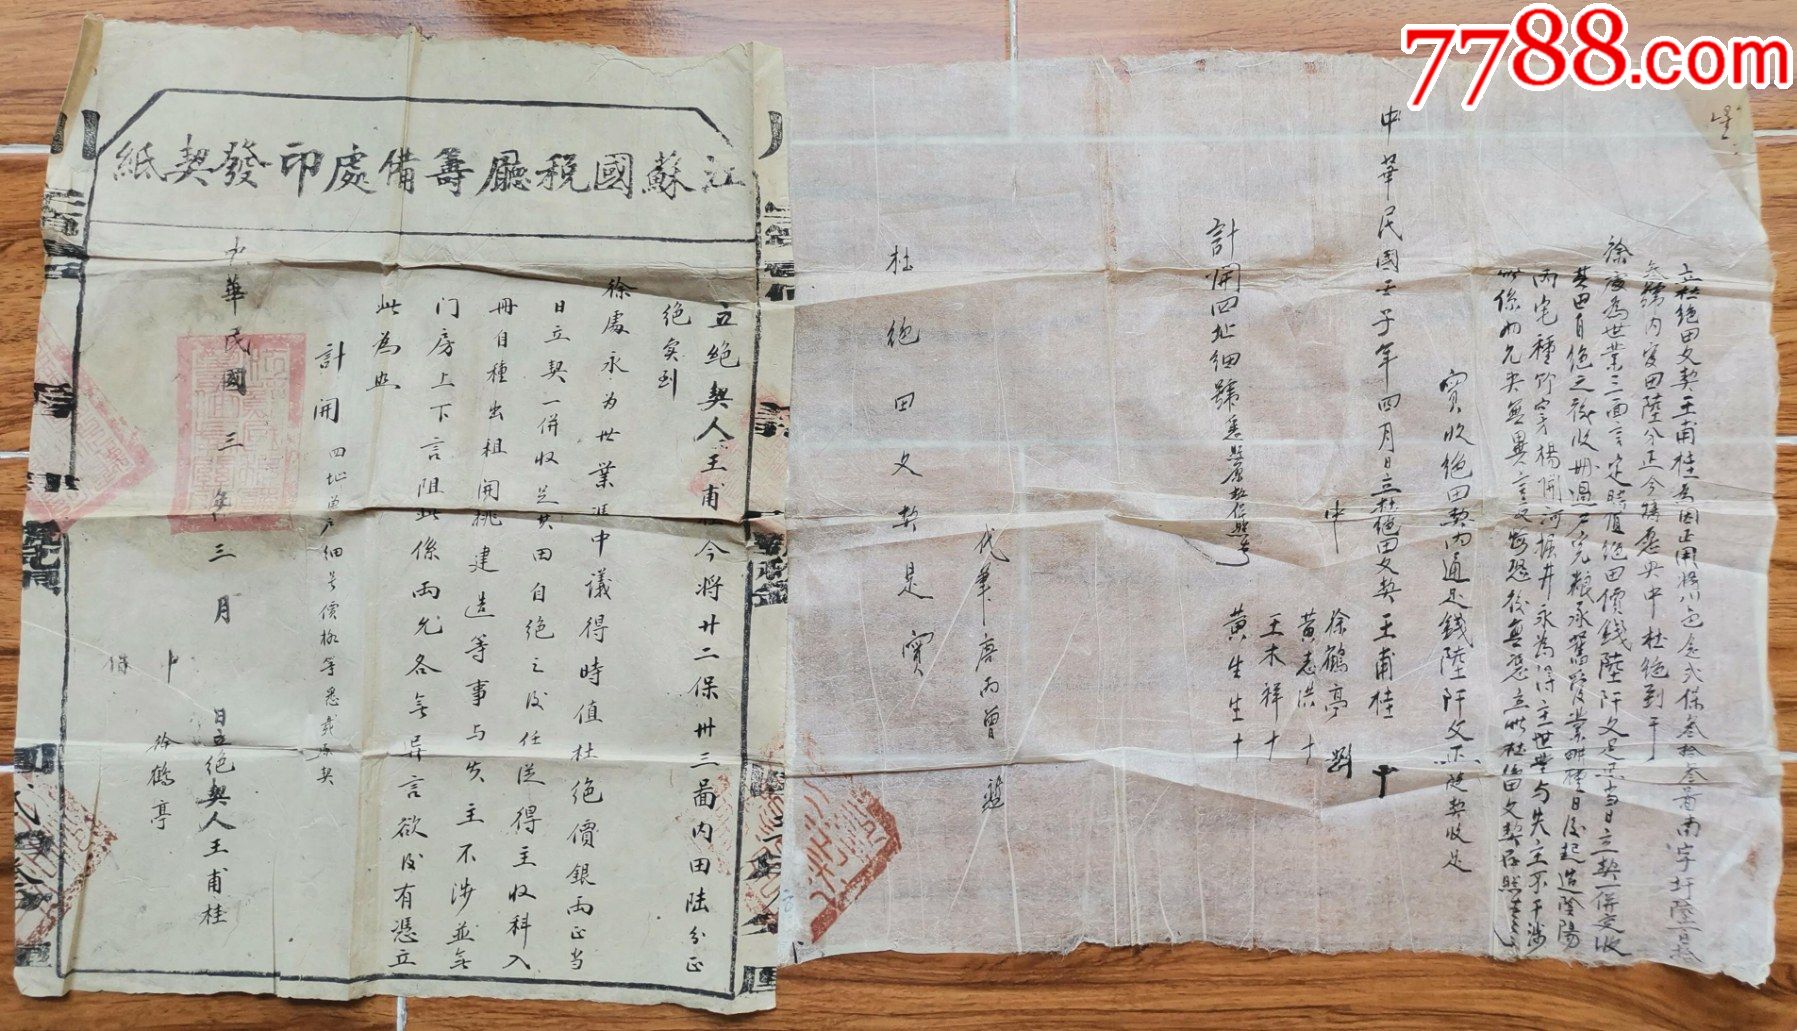 7788.com
江蘇國税廳籌備處印發契紙
立絕契人王甫桂今将廿二保卅三啚内田陆分正
絕賣到
徐處永为世業凴中議得時值杜絕價銀两正当
日立契一併收足其田自絕之后任從得主收科入
冊自種出租開挑建造等事与失主不涉並無
门房上下言阻此係两允各無异言欲後有憑立
此為照
計開 四址 户细号價格等悉载原契
中華民國三年三月 日立絕契人王甫桂
中 徐鶴亭
立杜絕田文契王甫桂為因正用将 式保叁拾叁啚南字圩陸百拾
號内官田陸分正今将憑央中杜絕到于
徐處為世業三面言定時值絕田價錢陸阡文足 当日立契一併交收
其田自絕之後收冊過戶完粮承 管業耕種日後起造陰陽
两宅種竹穿楊開河掘井永為得主世業与失主不干涉
係两允央無異言反悔恐後無憑立此杜絕田文契存照
實收絕田契内通足錢陸阡文 契收足
中華民國壬子年四月 日立杜絕田文契王甫桂 十
中 徐鶴亭
黄志洪 十
王木祥 十
黄生生 十
計開四址细號悉照舊 存照
代筆唐丙曾
杜絕田文契是實